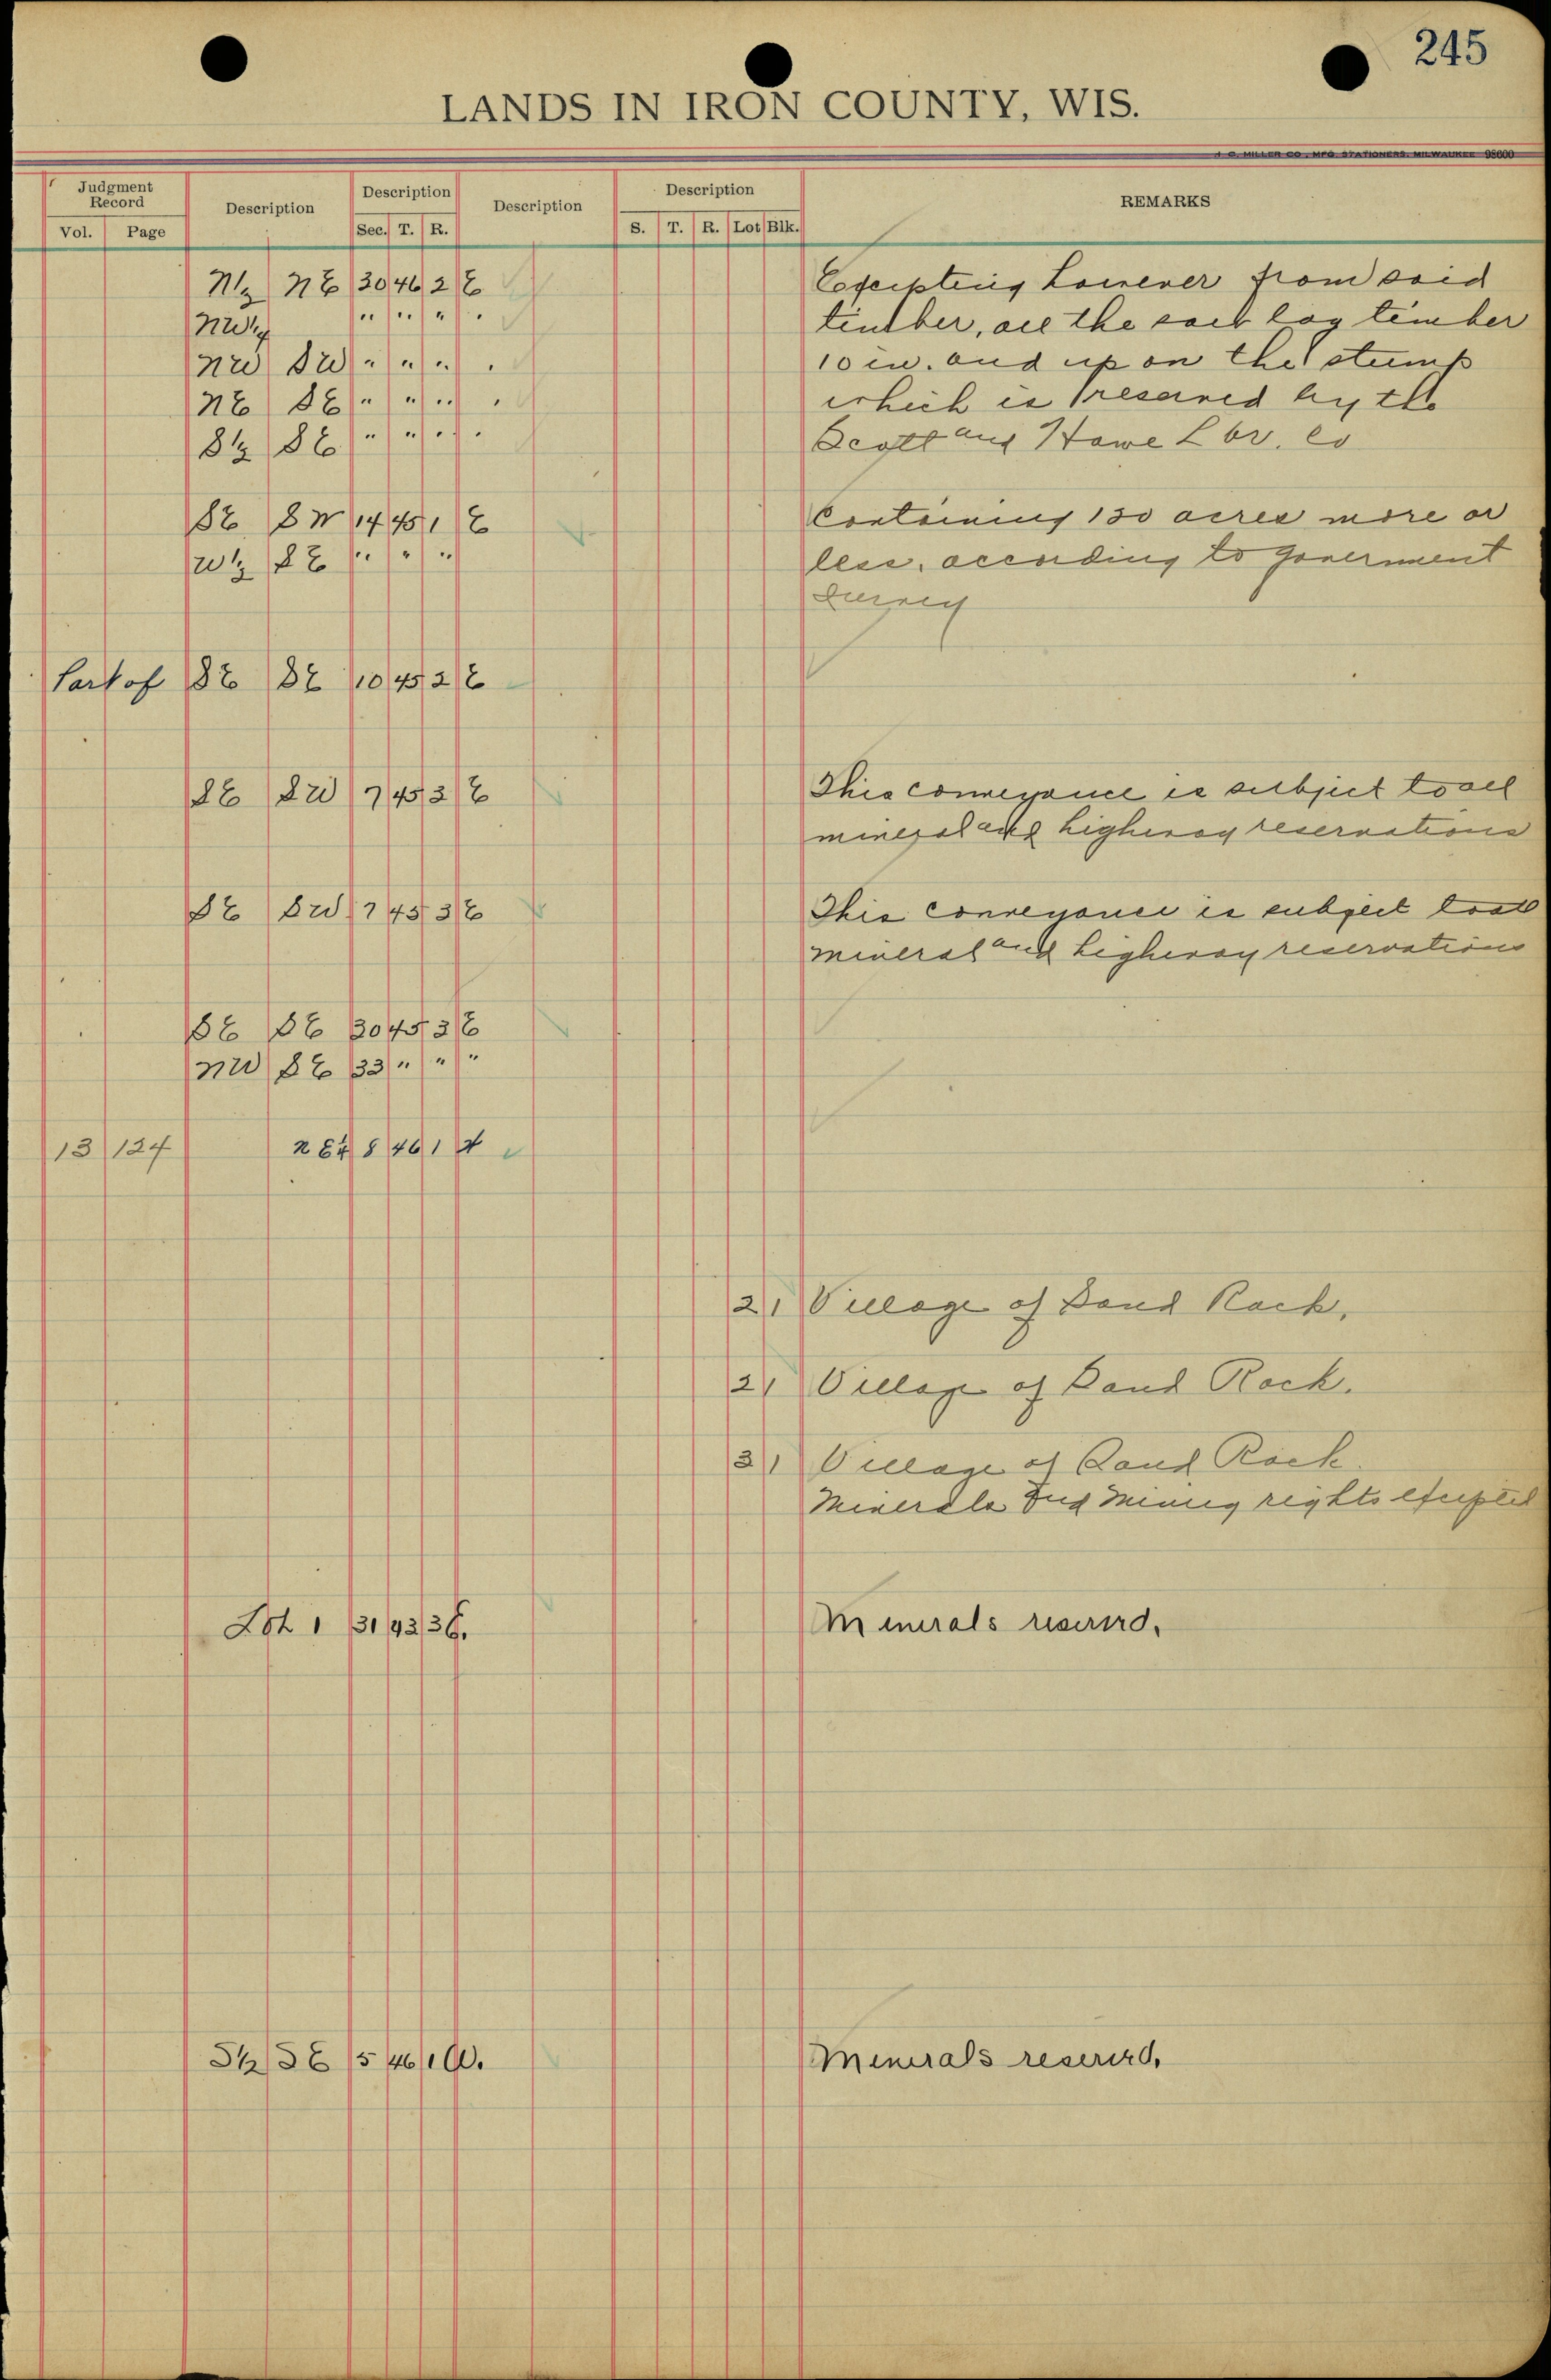 245
LANDS IN IRON COUNTY, WIS.
J. C. MILLER CO., MFG. STATIONERS, MILWAUKEE 98600
Judgment Record Description Description Description Description REMARKS
Vol. Page Sec. T. R. S. T. R. Lot Blk.
N½ NE 30 46 2 E Excepting however from said
NW¼ " " " " timber, all the saw log timber
NW SW " " " " 10 in. and up on the stump
NE SE " " " " which is reserved by the
S½ SE " " " " Scott and Howe Lbr. Co
SE SW 14 45 1 E Containing 130 acres more or
W½ SE " " " less, according to Goverment
Survey
Part of SE SE 10 45 2 E
SE SW 7 45 3 E This conveyance is subject to all
mineral and highway reservations
SE SW 7 45 3 E This conveyance is subject to all
mineral and highway reservations
SE SE 30 45 3 E
NW SE 33 " " "
13 124 NE¼ 8 46 1
2 1 Village of Sand Rock.
2 1 Village of Sand Rock.
3 1 Village of Sand Rock.
Minerals and Mining rights excepted
Lot 1 31 43 3 E. Minerals reserved.
S½ SE 5 46 1 W. Minerals reserved.